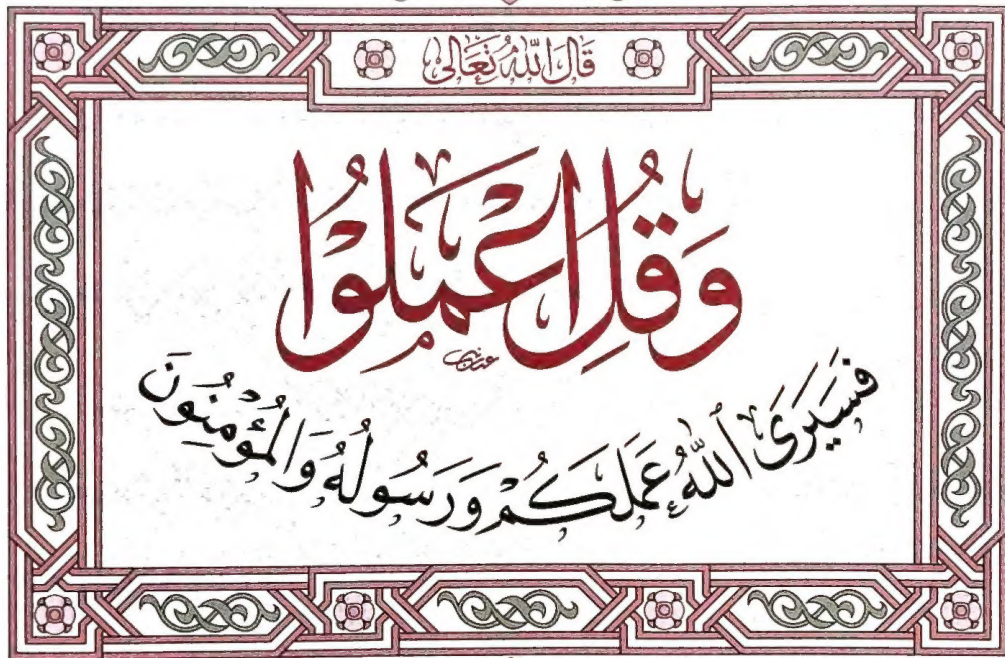 قَالَ اللّٰهُ تَعَالَى
وَقُلِ اعْمَلُوا
فَسَيَرَى ٱللّٰهُ عَمَلَكُمْ وَرَسُولُهُ وَالْمُؤْمِنُونَ